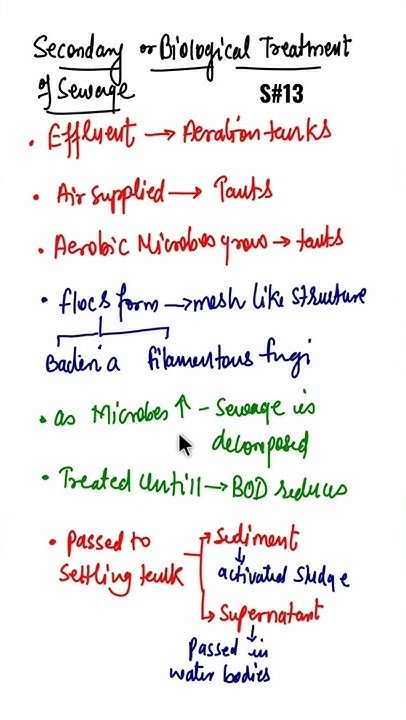 Secondary or Biological Treatment
of Sewage S#13
• Effluent → Aeration tanks
• Air supplied → Tanks
• Aerobic Microbes grow → tanks
• flocs form → mesh like structure
Bacteria filamentous fungi
• as Microbes ↑ - Sewage is
decomposed
• Treated untill → BOD reduces
• Passed to
settling tank
Sediment
↓
activated sludge
Supernatant
↓
Passed in
water bodies